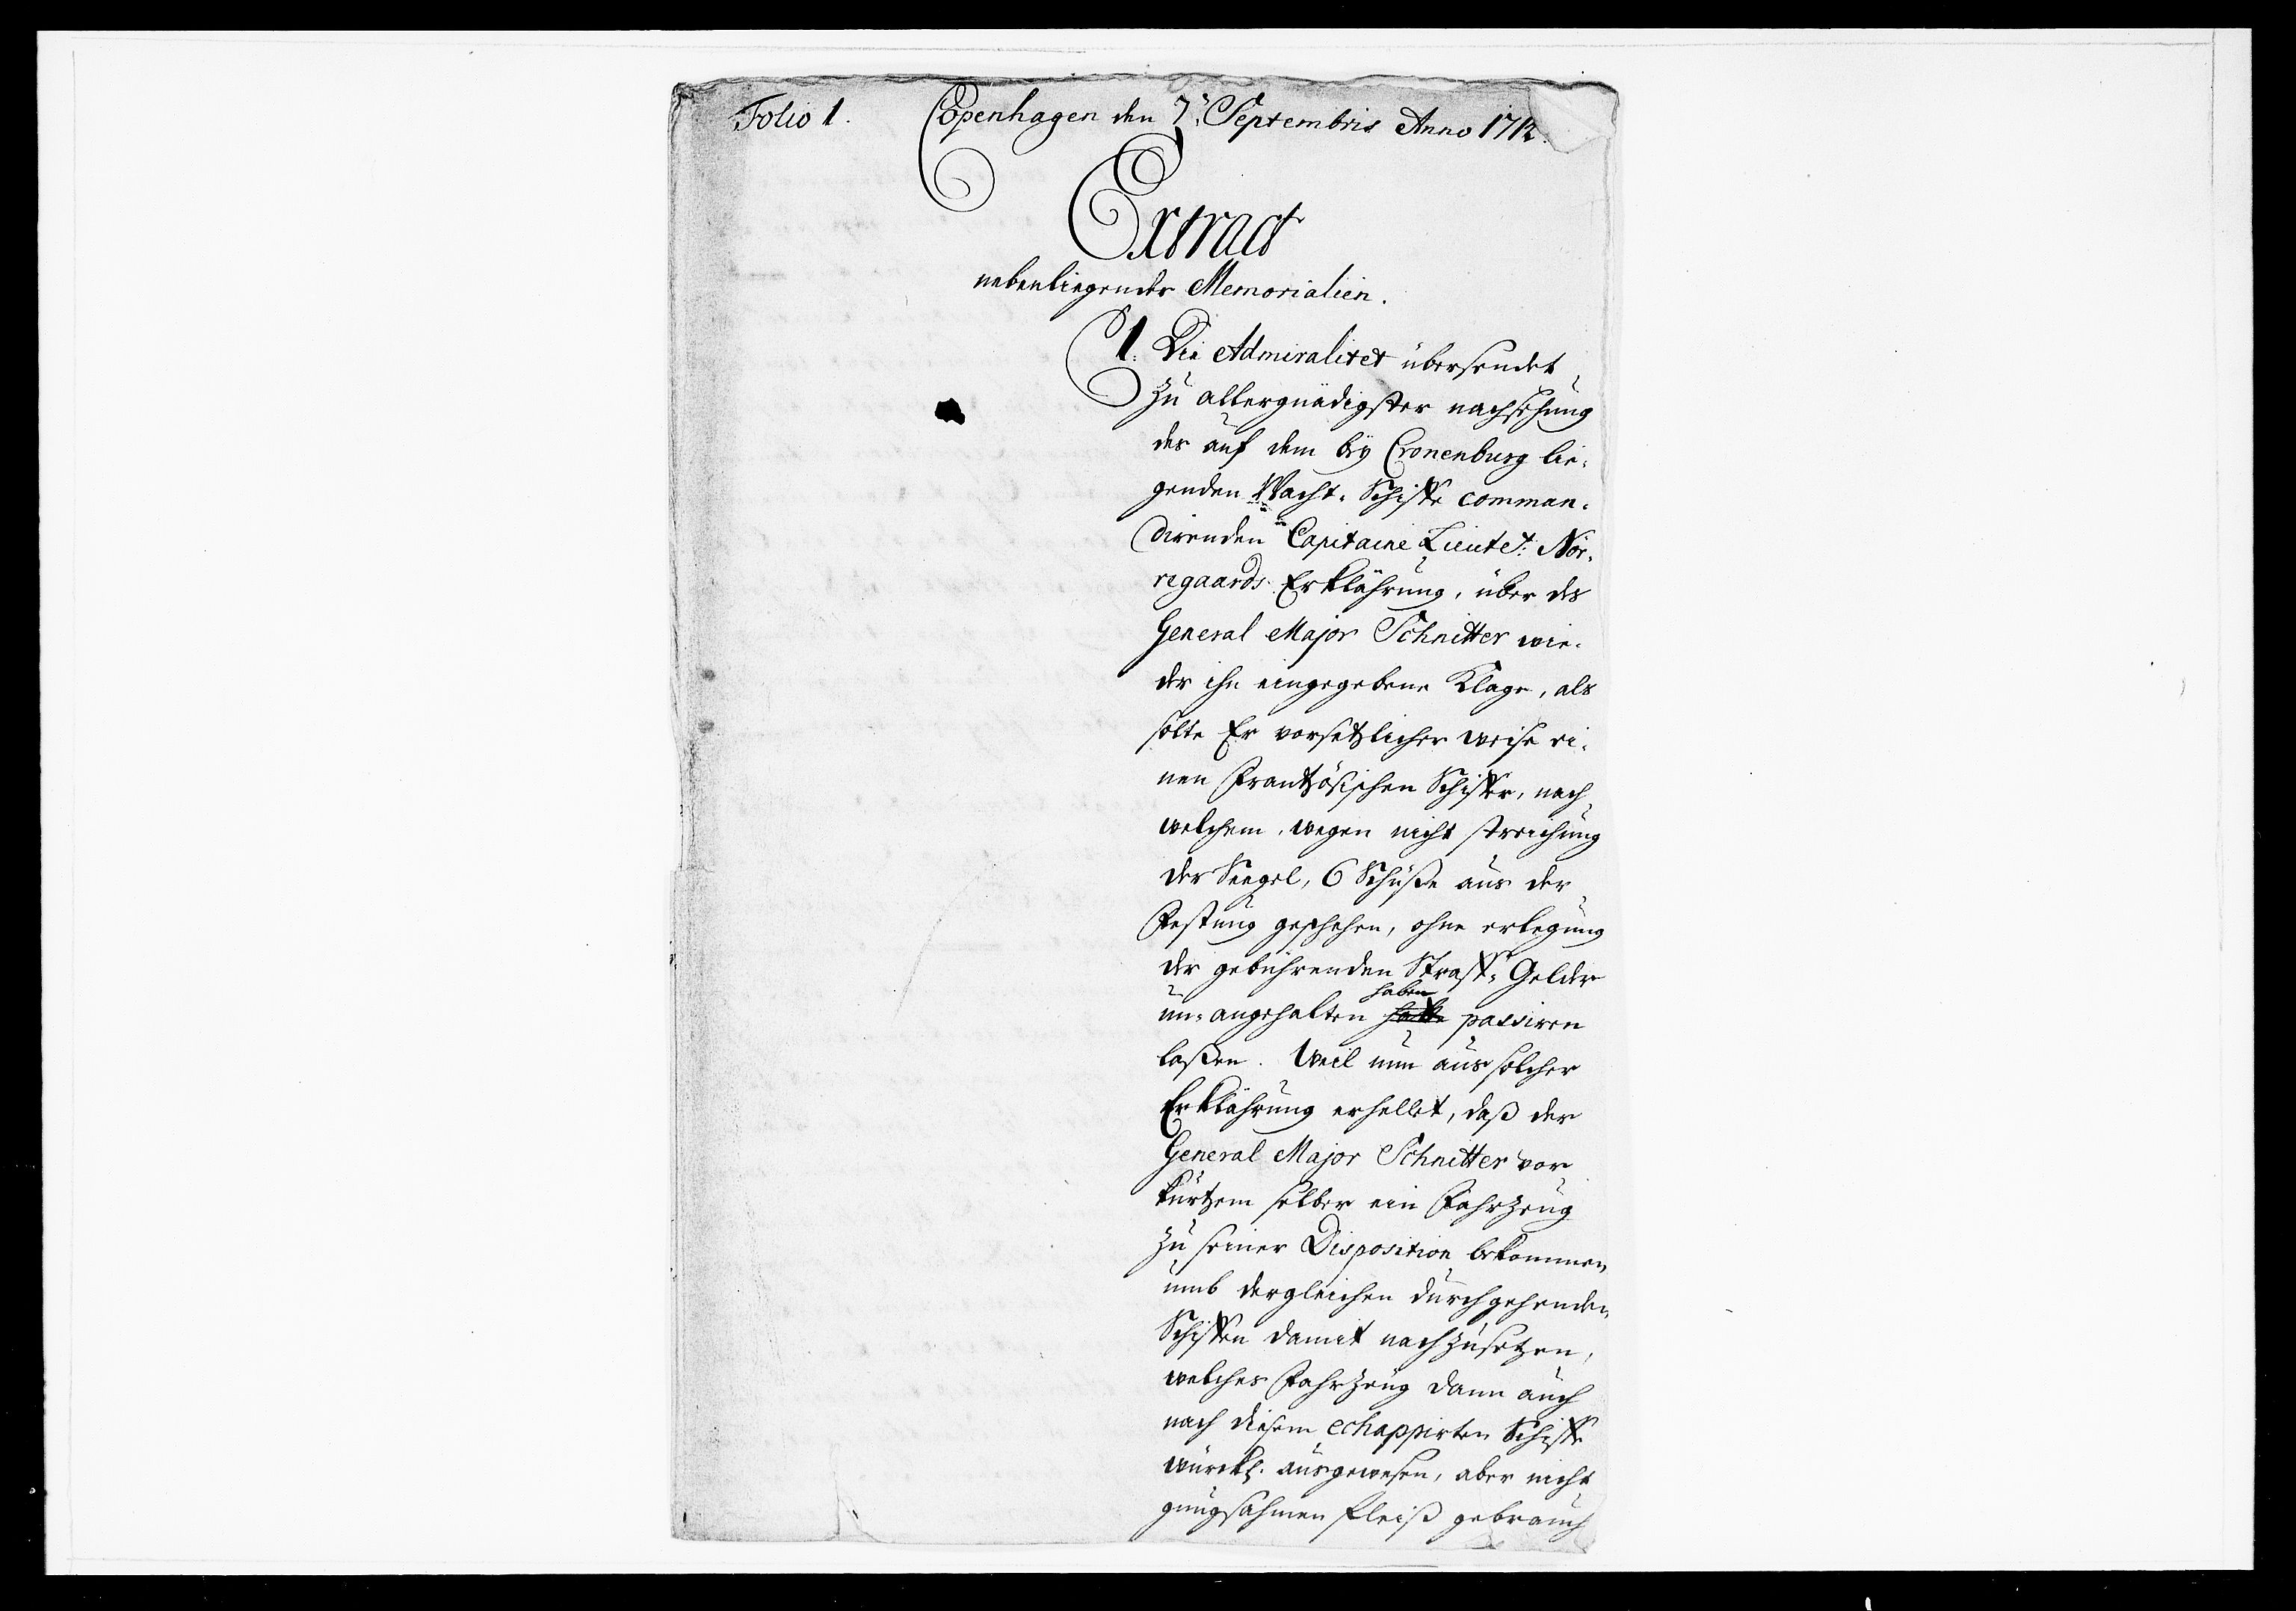 Folio 1. Copenhagen den 7. Septembris Anno 1712.
Extract
nebenliegender Memorialien.
1. Die Admiralitet übersendet
zu allergnädigster nachsehung
des auf dem bey Cronenburg lie-
genden Wacht-Schiffe comman-
direnden Capitaine Lieutet: Nör-
regaards Erklährung, über des
General Major Schnitter wie-
der ihn eingegebene Klage, als
solte Er vorsetzlicher weise ei-
nen Frantzösischen Schiffer, nach
welchem, wegen nicht streichung
der Seegel, 6 Schüße aus der
Festung geschehen, ohne erlegung
der gebührenden Straff-Gelder
un-angehalten haben passiren
laßen. Weil nun aus solcher
Erklährung erhellet, daß der
General Major Schnitter vor
kurtzem selber ein Fahrzeug
zu seiner Disposition bekommen,
umb dergleichen durchgehenden
Schiffen damit nachzusetzen,
welches Fahrzeug dann auch
nach diesem echappirten Schiffe
würckl. ausgewesen, aber nicht
gnugsahmen fleiß gebrauch